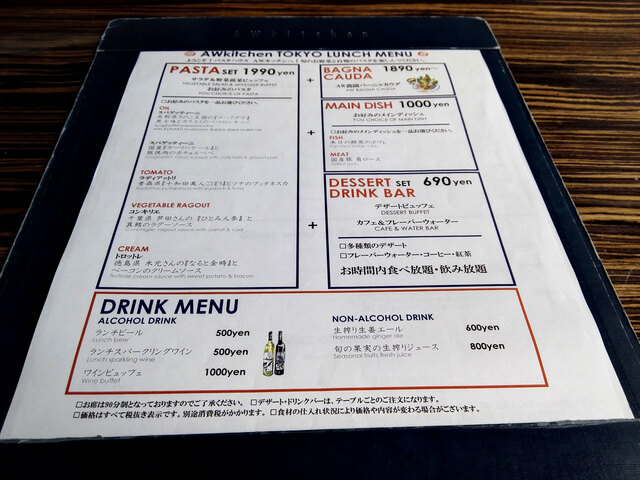 AWkitchen
AWkitchen TOKYO LUNCH MENU
PASTA SET 1990yen
サラダ&野菜前菜ビュッフェ
VEGETABLE SALAD & APPETIZER BUFFET
お好みのパスタ
YOU CHOICE OF PASTA
□お好みのパスタを一品お選びください。
OIL
スパゲッティーニ
スパゲッティーニ
国産『カーリーケール』と
豚挽肉のカチョエペペ
TOMATO
ラディアットリ
青森県『十和田美人ごぼう』とツナのプッタネスカ
VEGETABLE RAGOUT
コンキリエ
千葉県 芦田さんの『ひとみ人参』と
真鱈のラグーソース
Conchiglie ragout sauce with carrot & cod
CREAM
トロットレ
徳島県 木元さんの『なると金時』と
ベーコンのクリームソース
Trottole cream sauce with sweet potato & bacon
+
BAGNA CAUDA 1890yen～
AW農園バーニャカウダ
AW BAGNA CAUDA
+
MAIN DISH 1000yen
お好みのメインディッシュ
YOU CHOICE OF MAIN DISH
□お好みのメインディッシュを一品お選びください。
FISH
本日の鮮魚のポワレ
MEAT
国産豚 肩ロース
+
DESSERT SET
DRINK BAR 690yen
デザートビュッフェ
DESSERT BUFFET
カフェ&フレーバーウォーター
CAFE & WATER BAR
□多種類のデザート
□フレーバーウォーター・コーヒー・紅茶
お時間内食べ放題・飲み放題
DRINK MENU
ALCOHOL DRINK
ランチビール 500yen
Lunch beer
ランチスパークリングワイン 500yen
Lunch sparkling wine
ワインビュッフェ 1000yen
Wine buffet
NON-ALCOHOL DRINK
生搾り生姜エール 600yen
Homemade ginger ale
旬の果実の生搾りジュース 800yen
Seasonal fruits fresh juice
□お席は90分制となっておりますのでご了承ください。 □デザート・ドリンクバーは、テーブルごとのご注文になります。
□価格はすべて税抜き表示です。別途消費税がかかります。 □食材の仕入れ状況により価格や内容が変わる場合がございます。